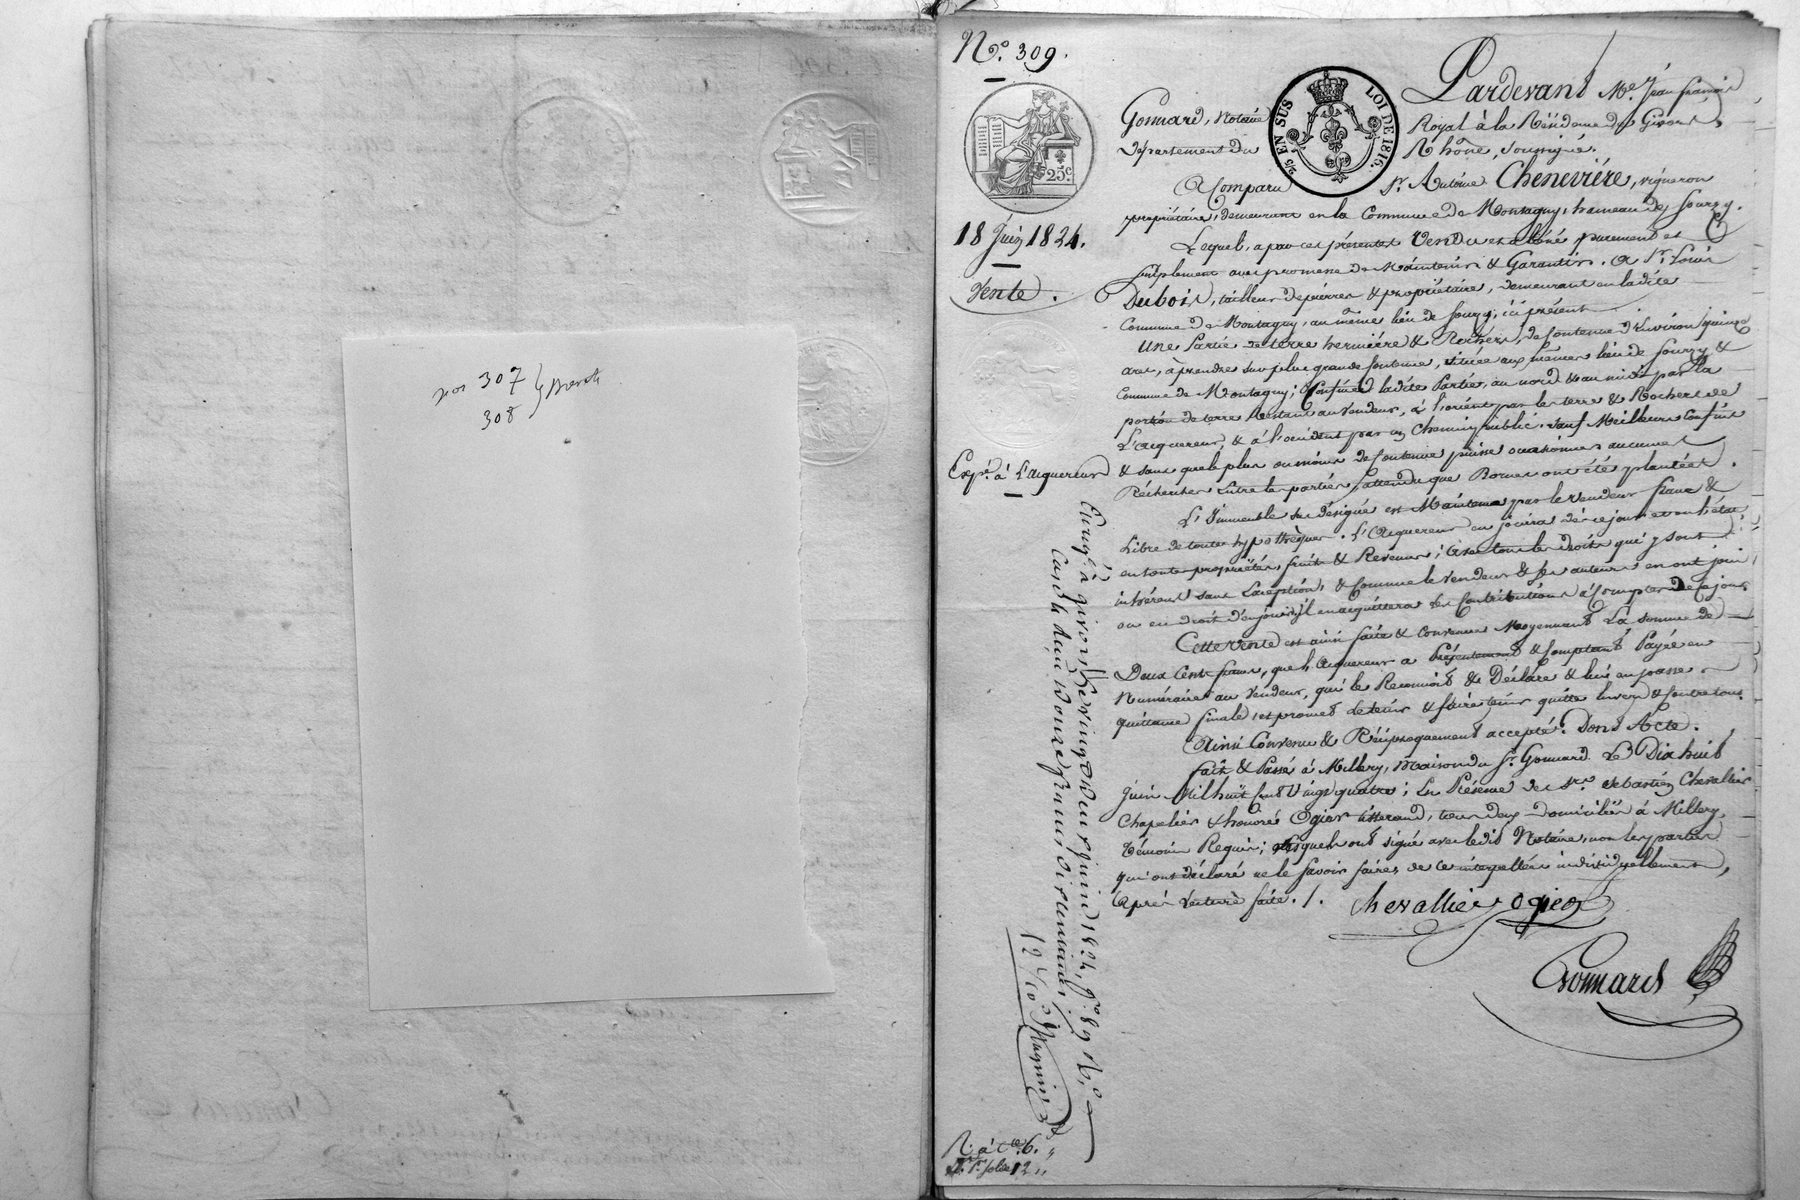 nos 307
308
N.o 309.
25c.
2/5 EN SUS
LOI DE 1816.
18 Juin 1824.
Vente.
Exp.é à L'acquereur
Pardevant Me. Jean françois
Gonnard, Notaire Royal à la Résidence de Givors,
département du Rhône, soussigné.
A Comparu Sr. Antoine Chenevière, vigneron
propriétaire, demeurant en la Commune de Montagny, hameau de Sourzy.
Lequel, a par ces présentes Vendu et a cédé purement et
simplement avec promesse de Maintenir & Garantir. à Sr. Louis
Dubois, tailleur de pierres & propriétaire, demeurant en ladite
Commune de Montagny, au même lieu de Sourzy, ici présent
Une Partie de terre hermière & Rochers, de Contenue d'Environ quinze
ares, à prendre sur plus grande Contenue, située aux mêmes lieu de Sourzy &
Commune de Montagny; Confinée ladite Partie, au nord & au midi par La
portion de terre Restant au Vendeur, à l'orient par les terre & Rochers de
L'acquereur, & à l'occident par un Chemin public. sauf Meilleurs Confins
& sans que le plus ou moins de Contenue puisse occasionner aucunes
Recherches Entre les parties, attendu que Bornes ont été plantées.
L'Immeuble sus désigné est Maintenu par le Vendeur franc &
Libre de toutes hypothèques. L'Acquereur en jouira dès ce jour et en l'état
en toute propriétés, fruits & Revenus; avec tous les droits qui y sont
inhérents sans Exception, & Comme le Vendeur & ses auteurs en ont joui
ou eu droit d'en jouir; il en acquittera les Contributions à Compter de ce jour
Cette Vente est ainsi faite & Convenue Moyennant La somme de
Deux Cents francs, que L'acquereur a Présentement & Comptant Payée en
Numéraire au Vendeur, qui le Reconnoit & Déclare & lui en passe
quittance finale, et promet Le tenir & faire tenir quitte Envers & Contre tous.
Ainsi Convenu & Réciproquement accepté. Dont Acte.
fait & Passé à Millery, Maison du Sr. Gonnard Le Dix huit
juin Mil huit Cent Vingt quatre; En Présence de Srs. Sebastien Chevallier
Chapelier & honoré Ogier tisserand, tous deux domiciliés à Millery
témoins Requis; Lesquels ont signé avec ledit Notaire, non les parties
qui ont déclaré ne le savoir faire, de ce interpellées individuellement,
Après Lecture faite. /.
Chevallier Ogier
Gonnard
Enreg.é à givors, le vingt deux juin 1824, f.o 89 R.o
Case 4. deux douze francs dix centimes
12f 10c Magnin
R. à Cte. 6. "